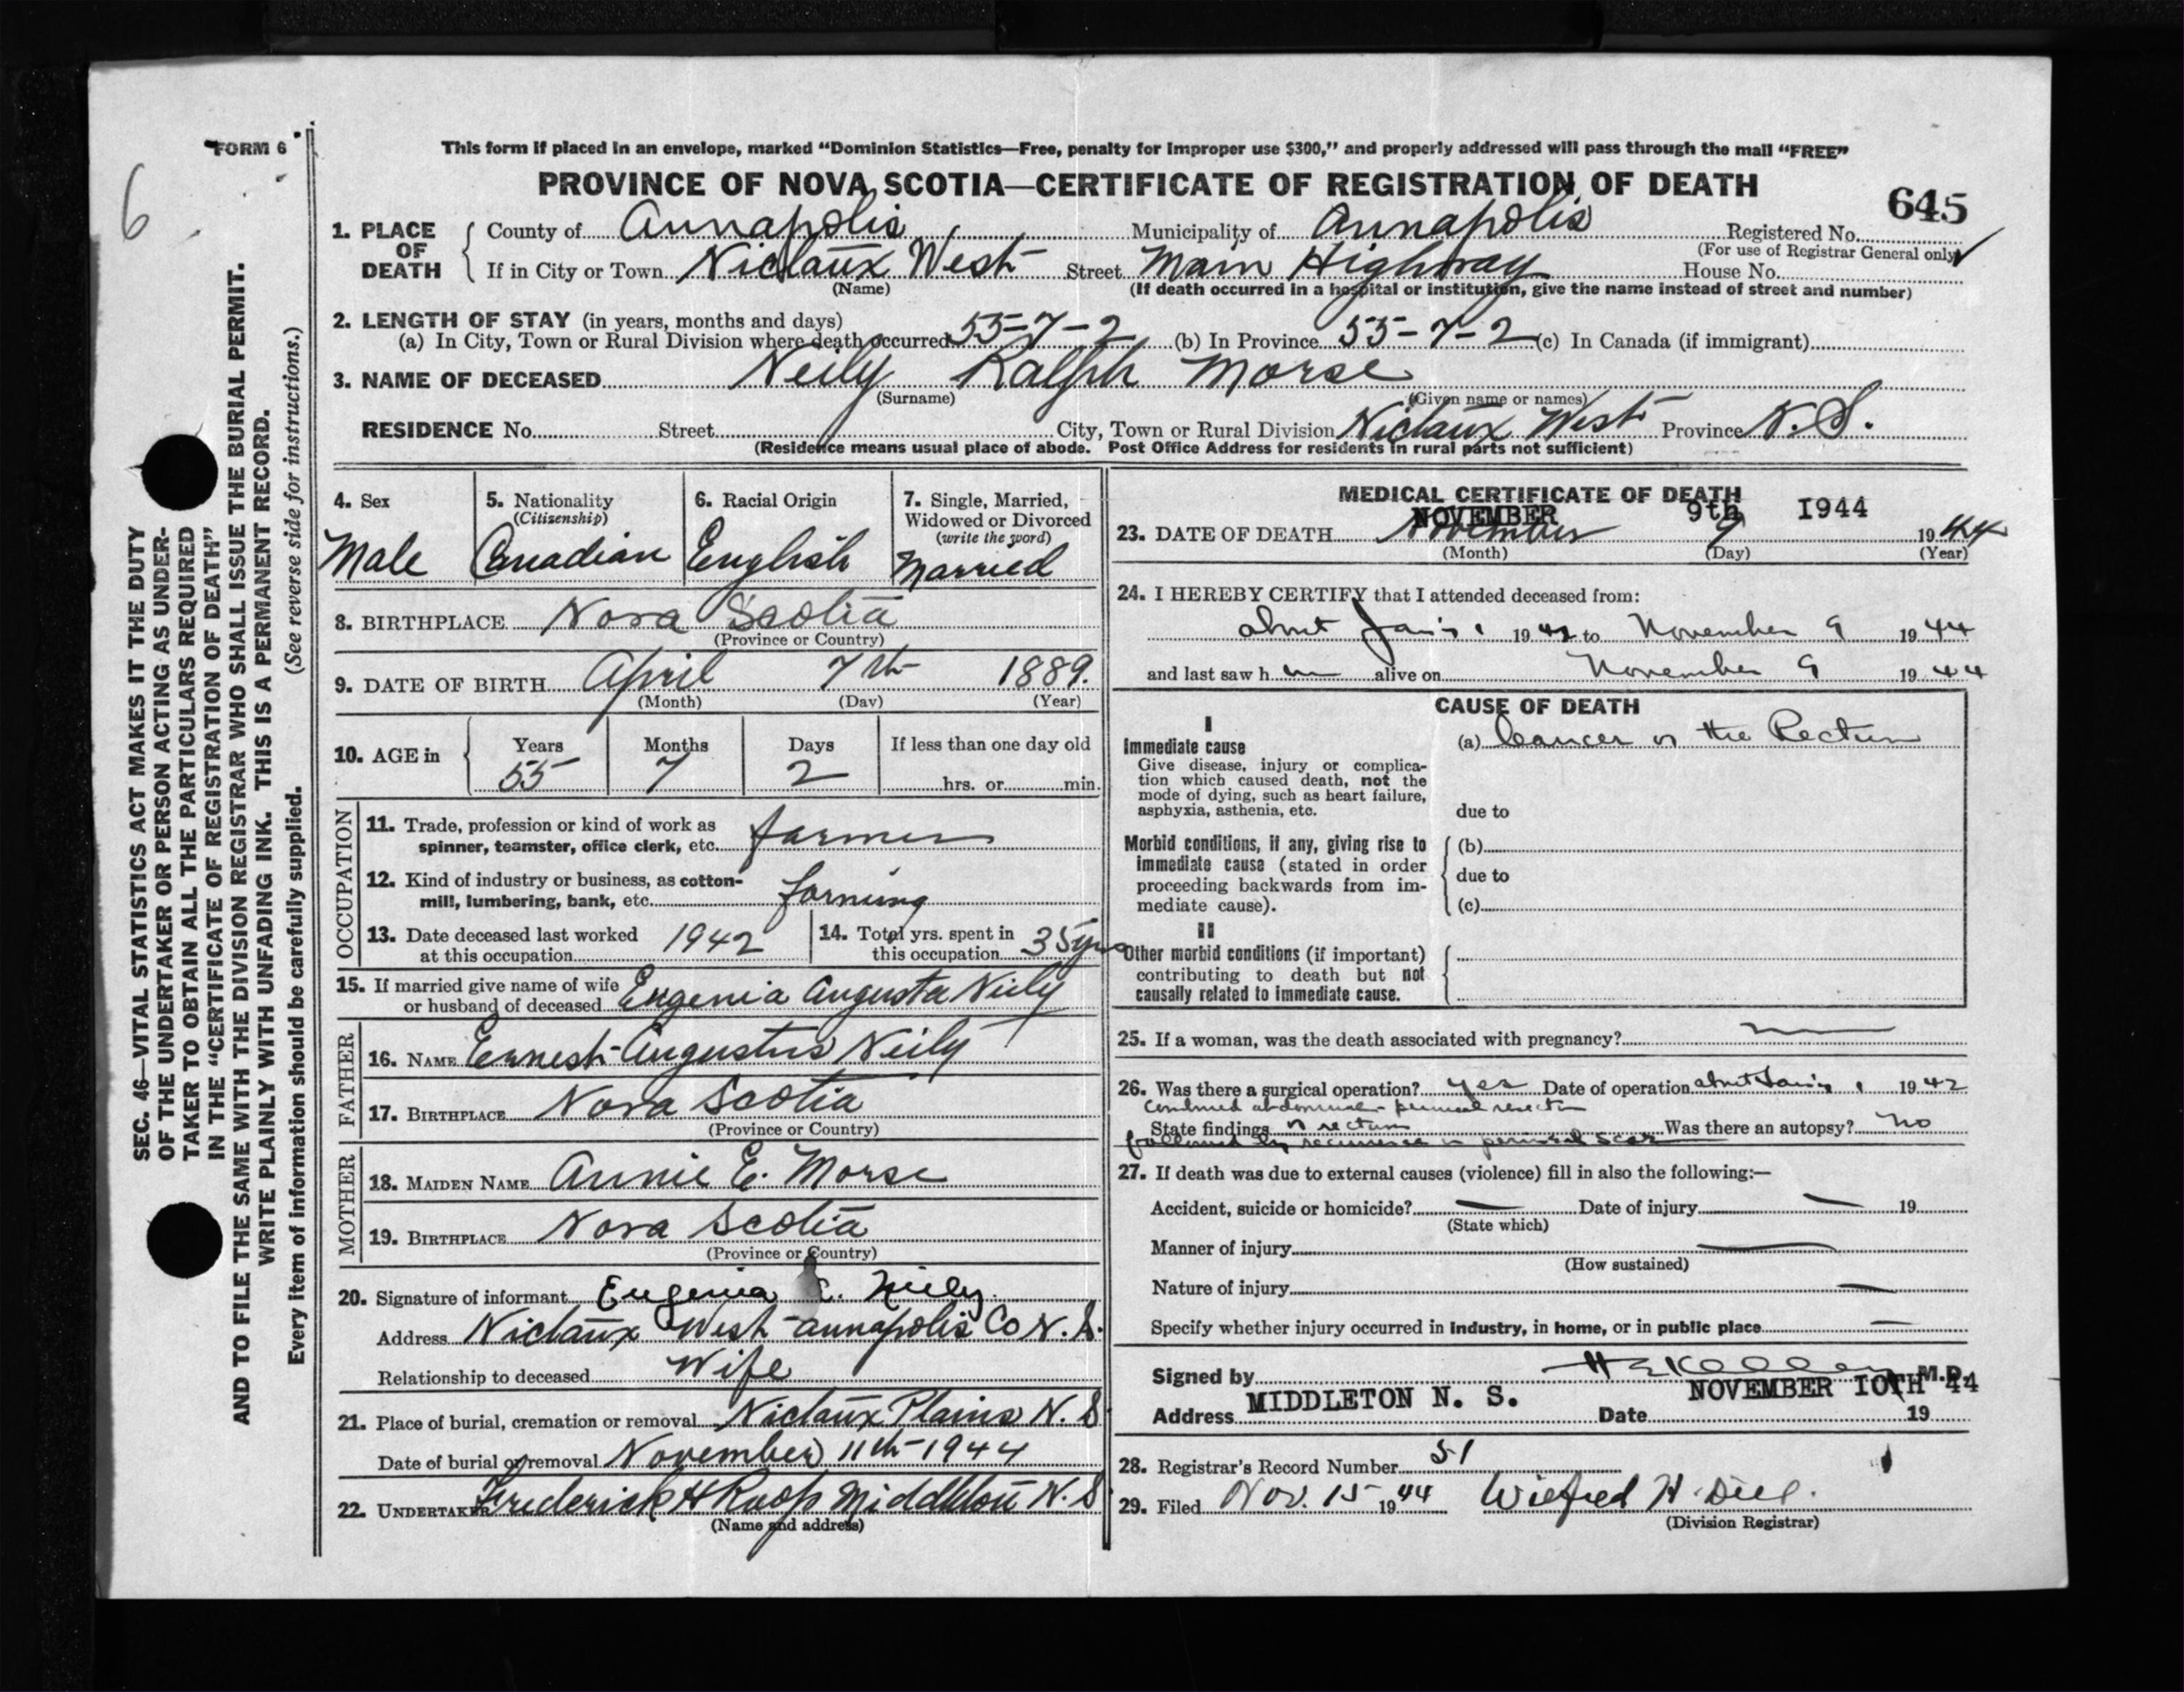 FORM 6
6
This form if placed in an envelope, marked “Dominion Statistics—Free, penalty for improper use $300,” and properly addressed will pass through the mail “FREE”
PROVINCE OF NOVA SCOTIA—CERTIFICATE OF REGISTRATION OF DEATH
645
1. PLACE OF DEATH { County of Annapolis Municipality of Annapolis Registered No.
(For use of Registrar General only)
If in City or Town Nictaux West Street Main Highway House No.
(Name) (If death occurred in a hospital or institution, give the name instead of street and number)
2. LENGTH OF STAY (in years, months and days)
(a) In City, Town or Rural Division where death occurred 55-7-2 (b) In Province 55-7-2 (c) In Canada (if immigrant)
3. NAME OF DECEASED Neily Ralph Morse
(Surname) (Given name or names)
RESIDENCE No. Street City, Town or Rural Division Nictaux West Province N.S.
(Residence means usual place of abode. Post Office Address for residents in rural parts not sufficient)
4. Sex 5. Nationality 6. Racial Origin 7. Single, Married,
(Citizenship) Widowed or Divorced
(write the word)
Male Canadian English Married
8. BIRTHPLACE Nova Scotia
(Province or Country)
9. DATE OF BIRTH April 7th 1889.
(Month) (Day) (Year)
10. AGE in { Years Months Days If less than one day old
55 7 2 hrs. or min.
OCCUPATION
11. Trade, profession or kind of work as
spinner, teamster, office clerk, etc. farmer
12. Kind of industry or business, as cotton-
mill, lumbering, bank, etc. farming
13. Date deceased last worked at this occupation 1942
14. Total yrs. spent in this occupation 35 yrs
15. If married give name of wife
or husband of deceased Eugenia Augusta Neily
FATHER
16. NAME Ernest Augustus Neily
17. BIRTHPLACE Nova Scotia
(Province or Country)
MOTHER
18. MAIDEN NAME Annie E. Morse
19. BIRTHPLACE Nova Scotia
(Province or Country)
20. Signature of informant Eugenia Neily
Address Nictaux West Annapolis Co N.S.
Relationship to deceased Wife
21. Place of burial, cremation or removal Nictaux Plains N.S
Date of burial or removal November 11th 1944
22. UNDERTAKER Frederick H Roop Middleton N.S
(Name and address)
MEDICAL CERTIFICATE OF DEATH
NOVEMBER 9th 1944
23. DATE OF DEATH November 9 1944
(Month) (Day) (Year)
24. I HEREBY CERTIFY that I attended deceased from:
about Jan'y 1 1942 to November 9 1944
and last saw him alive on November 9 1944
CAUSE OF DEATH
I
Immediate cause (a) Cancer of the Rectum
Give disease, injury or complica-
tion which caused death, not the
mode of dying, such as heart failure,
asphyxia, asthenia, etc. due to
Morbid conditions, if any, giving rise to { (b)
immediate cause (stated in order due to
proceeding backwards from im-
mediate cause). (c)
II
Other morbid conditions (if important)
contributing to death but not
causally related to immediate cause.
25. If a woman, was the death associated with pregnancy?
26. Was there a surgical operation? yes Date of operation about Jan'y 1 1942
Combined abdominal-perineal resection
State findings of rectum Was there an autopsy? No
followed by recurrence in perineal scar
27. If death was due to external causes (violence) fill in also the following:—
Accident, suicide or homicide? — Date of injury — 19
(State which)
Manner of injury —
(How sustained)
Nature of injury —
Specify whether injury occurred in industry, in home, or in public place —
Signed by M.D.
Address MIDDLETON N. S. Date NOVEMBER 10TH 1944
28. Registrar's Record Number 51
29. Filed Nov. 15 1944 Wilfred H.
(Division Registrar)
SEC. 46—VITAL STATISTICS ACT MAKES IT THE DUTY
OF THE UNDERTAKER OR PERSON ACTING AS UNDER-
TAKER TO OBTAIN ALL THE PARTICULARS REQUIRED
IN THE “CERTIFICATE OF REGISTRATION OF DEATH”
AND TO FILE THE SAME WITH THE DIVISION REGISTRAR WHO SHALL ISSUE THE BURIAL PERMIT.
WRITE PLAINLY WITH UNFADING INK. THIS IS A PERMANENT RECORD.
Every item of information should be carefully supplied. (See reverse side for instructions.)